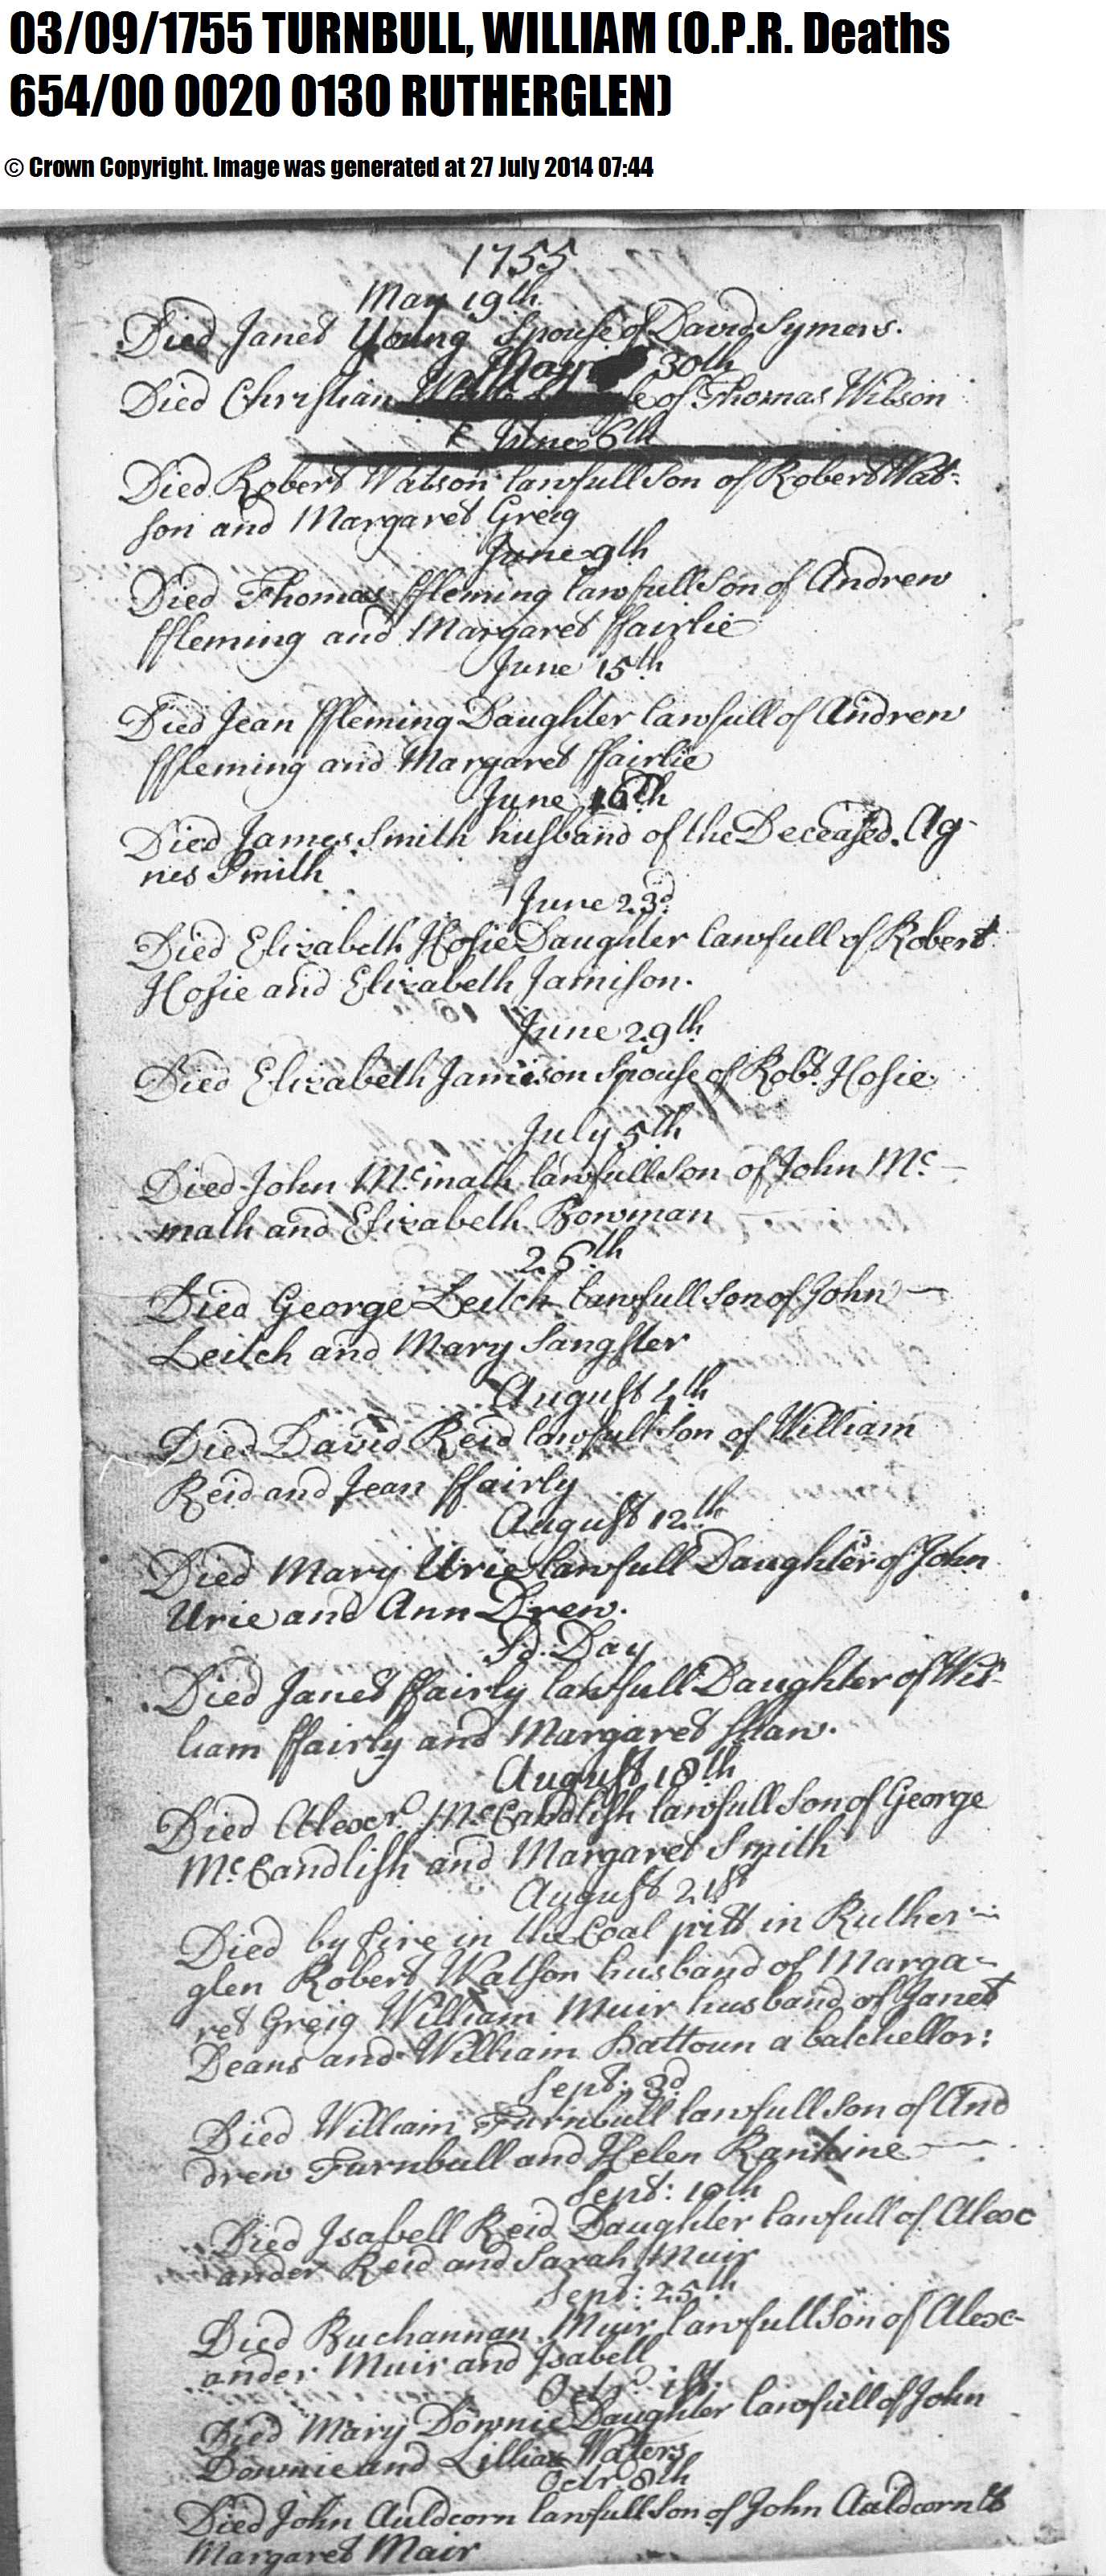 03/09/1755 TURNBULL, WILLIAM (O.P.R. Deaths
654/00 0020 0130 RUTHERGLEN)
© Crown Copyright. Image was generated at 27 July 2014 07:44
1755
May 19th
Died Janet Young Spouse of David Symers.
May 30th
Died Christian of Thomas Wilson
June 6th
Died Robert Watson lawfull Son of Robert Wat-
son and Margaret Greig
June 9th
Died Thomas ffleming lawfull Son of Andrew
ffleming and Margaret ffairlie
June 15th
Died Jean ffleming Daughter lawfull of Andrew
ffleming and Margaret ffairlie
June 16th
Died James Smith husband of the Deceased. Ag-
nes Smith
June 23d
Died Elizabeth Hosie Daughter lawfull of Robert
Hosie and Elizabeth Jamison.
June 29th
Died Elizabeth Jamieson Spouse of Robt. Hosie
July 5th
Died John Mcmath lawfull Son of John Mc-
math and Elizabeth Bowman
26th
Died George Leitch lawfull Son of John
Leitch and Mary Sangster
August 4th
Died David Reid lawfull Son of William
Reid and Jean ffairly
August 12th
Died Mary Urie lawfull Daughter of John
Urie and Ann Drew.
Sd. Day
Died Janet ffairly lawfull Daughter of Wil-
liam ffairly and Margaret Shaw.
August 18th
Died Alexr. McCandlish lawfull Son of George
McCandlish and Margaret Smith
August 21st
Died by fire in the Coal pitt in Ruther-
glen Robert Watson husband of Marga-
ret Greig William Muir husband of Janet
Deans and William Battoun a batchellor:
Sept: 3d
Died William Turnbull lawfull Son of And
drew Turnbull and Helen Rankine
Sept: 19th
Died Isabell Reid Daughter lawfull of Alex
ander Reid and Sarah Muir
Sept: 25th
Died Buchannan Muir lawfull Son of Alex-
ander Muir and Isabell
Octr. 1st.
Died Mary Downie Daughter lawfull of John
Downie and Lillias Waters
Octr. 8th
Died John Auldcorn lawfull Son of John Auldcorn &
Margaret Mair